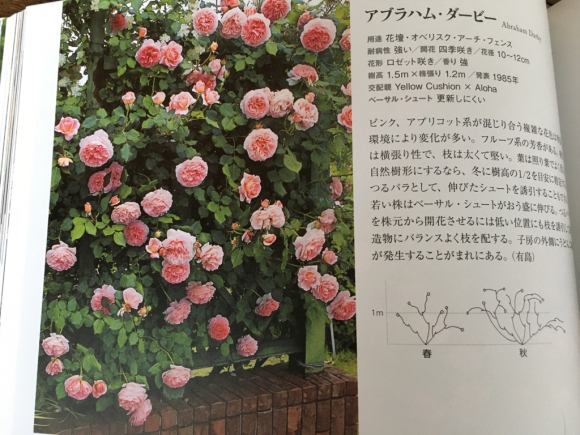 アブラハム・ダービー Abraham Darby
用途 花壇・オベリスク・アーチ・フェンス
耐病性 強い／開花 四季咲き／花径 10〜12cm
花形 ロゼット咲き／香り 強
樹高 1.5m×株張り 1.2m／発表 1985年
交配親 Yellow Cushion × Aloha
ベーサル・シュート 更新しにくい
ピンク、アプリコット系が混じり合う複雑な花色は
環境により変化が多い。フルーツ系の芳香がある。
は横張り性で、枝は太くて堅い。葉は照り葉で
自然樹形にするなら、冬に樹高の1/2を目安に
つるバラとして、伸びたシュートを誘引することも
若い株はベーサル・シュートがおう盛に伸びる。
を株元から開花させるには低い位置にも枝を誘引し
造物にバランスよく枝を配する。子房の外側に
が発生することがまれにある。（有島）
1m
春
秋